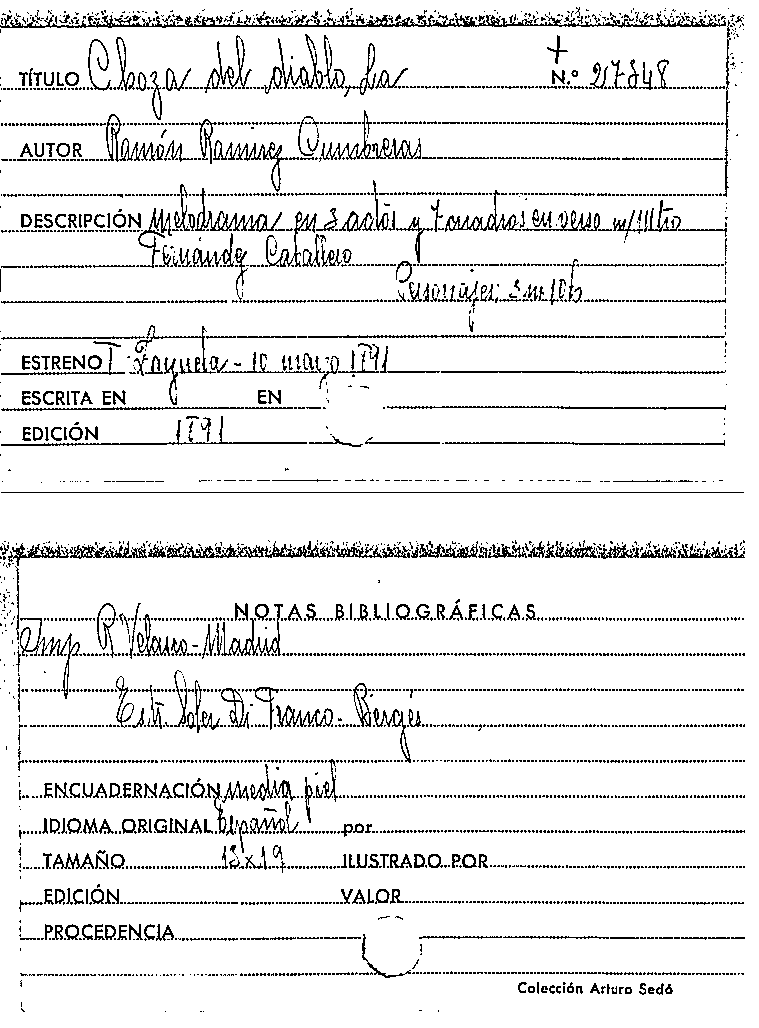 +
TÍTULO Choza del diablo, La N.º 27848
AUTOR Ramón Ramirez Cumbreras
DESCRIPCIÓN Melodrama en 3 actos y 7 cuadros en verso m/ Mtro
Fernández Caballero
Personajes: 3 m 10 h
ESTRENO T. Zarzuela - 10 marzo 1891
ESCRITA EN EN
EDICIÓN 1891
NOTAS BIBLIOGRÁFICAS
Imp R Velasco - Madrid
Estr. Soler Di Franco - Bergés
ENCUADERNACIÓN media piel
IDIOMA ORIGINAL Español por
TAMAÑO 13x19 ILUSTRADO POR
EDICIÓN VALOR
PROCEDENCIA
Colección Arturo Sedó